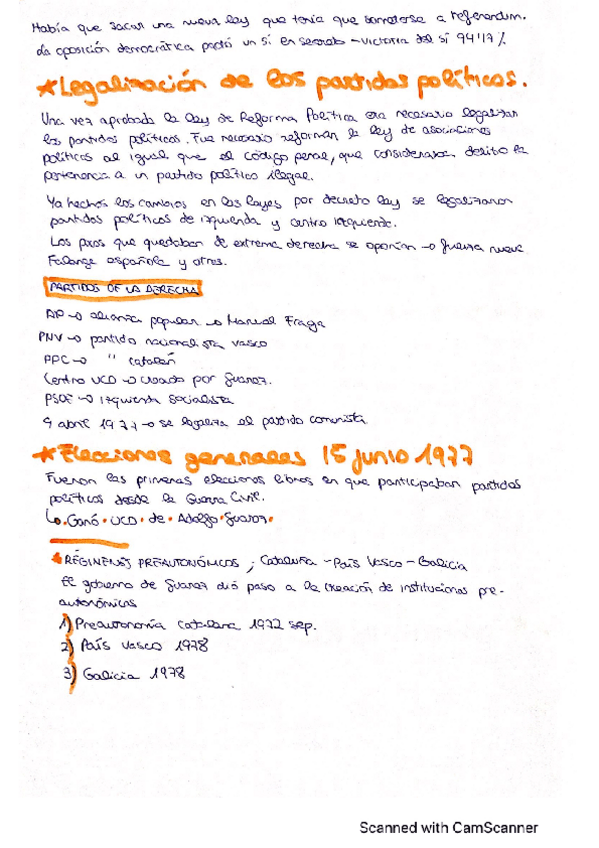 Había que sacar una nueva ley que tenía que someterse a referendum.
La oposición democrática pactó un sí en secreto - victoria del sí 94'17%
★Legalización de los partidos políticos.
Una vez aprobada la ley de Reforma Política era necesario legalizar
los partidos políticos. Fue necesario reforman la ley de asociaciones
políticos al igual que el código penal, que consideraban delito la
pertenencia a un partido político ilegal.
Ya hechos los cambios en las leyes por decreto ley se legalizaron
partidos políticos de izquierda y centro izquierda.
Los pxos que quedaban de extrema derecha se oponían → fuerza nueva
Falange española y otres.
PARTIDOS DE LA DERECHA
AP → alianza popular → Manuel Fraga
PNV → partido nacionalista vasco
PPC → " catalán
Centro UCD → creado por Suarez.
PSOE → izquierda socialista
9 abril 1977 → se legaliza el partido comunista
★Elecciones generales 15 junio 1977
Fueron las primeras elecciones libres en que participaban partidos
políticos desde la Guerra Civil.
↳ Ganó UCD de Adolfo Suarez.
REGÍMENES PREAUTONÓMICOS, Cataluña - País Vasco - Galicia
El gobierno de Suarez dió paso a la creación de instituciones pre-
autonómicas
1) Preautonomía catalana 1977 sep.
2) País Vasco 1978
3) Galicia 1978
Scanned with CamScanner